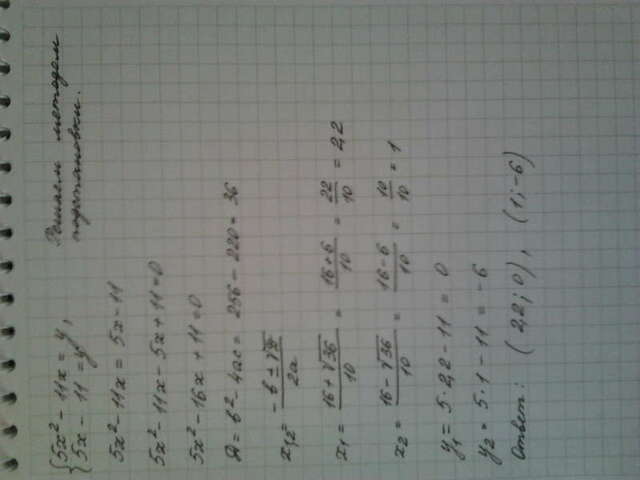 {5x² - 11x = y,
5x - 11 = y
Решаем методом
подстановки.
5x² - 11x = 5x - 11
5x² - 11x - 5x + 11 = 0
5x² - 16x + 11 = 0
Д = b² - 4ac = 256 - 220 = 36
x₁,₂ = (-b ± √Д)/2a
x₁ = (16 + √36)/10 = (16 + 6)/10 = 22/10 = 2,2
x₂ = (16 - √36)/10 = (16 - 6)/10 = 10/10 = 1
y₁ = 5 · 2,2 - 11 = 0
y₂ = 5 · 1 - 11 = -6
Ответ: (2,2; 0), (1; -6)